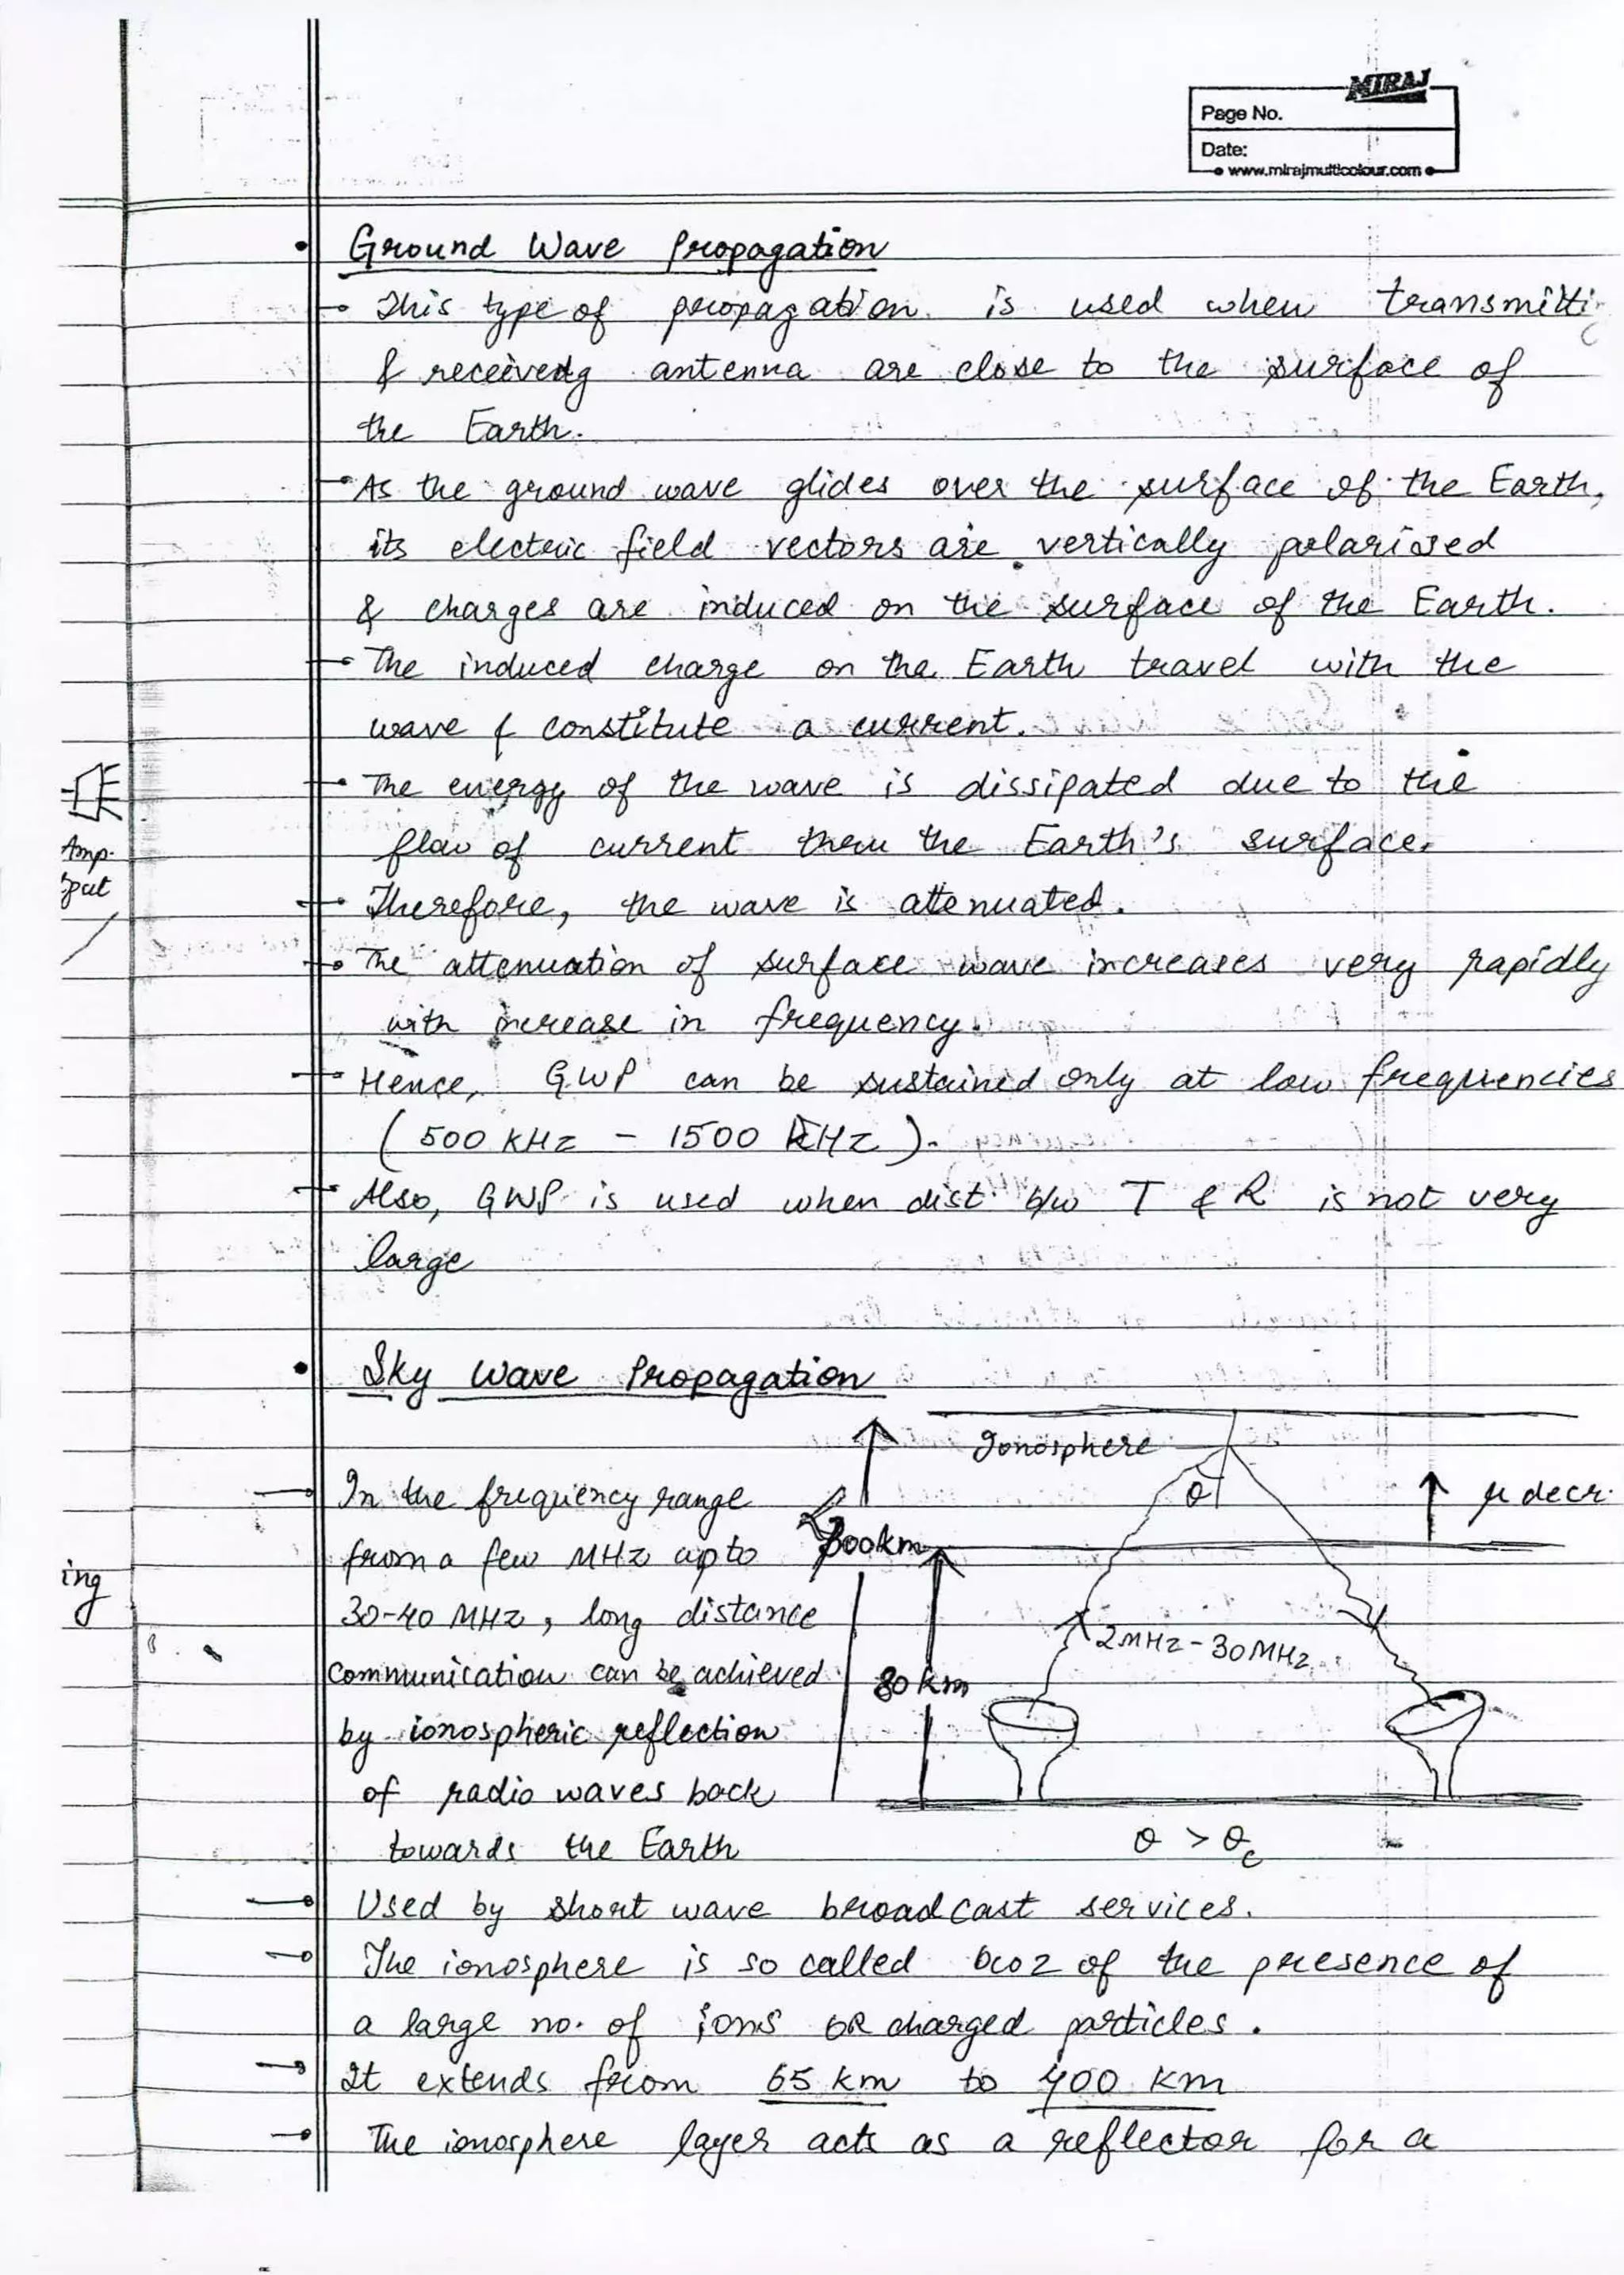 MIRAJ
Page No.
Date:
www.mirajmulticolour.com
Ground Wave Propagation
This type of propagation is used when transmitti
& receiving antenna are close to the surface of
the Earth.
As the ground wave glides over the surface of the Earth,
its electric field vectors are vertically polarised
& charges are induced on the surface of the Earth.
The induced charge on the Earth travel with the
wave & constitute a current.
The energy of the wave is dissipated due to the
flow of current thru the Earth's surface.
Amp.
put
Therefore, the wave is attenuated.
The attenuation of surface wave increases very rapidly
with increase in frequency.
Hence, GWP can be sustained only at low frequencies
(500 KHz - 1500 KHz).
Also, GWP is used when dist. b/w T & R is not very
large
Sky Wave Propagation
In the frequency range
from a few MHz upto
30-40 MHz, long distance
communication can be achieved
by ionospheric reflection
of radio waves back
towards the Earth
ing
Ionosphere
θ
μ decr.
300km
2MHz - 30MHz
80 km
θ > θc
Used by short wave broadcast services.
The ionosphere is so called bcoz of the presence of
a large no. of ions OR charged particles.
It extends from 65 km to 400 km
The ionosphere layer acts as a reflector for a